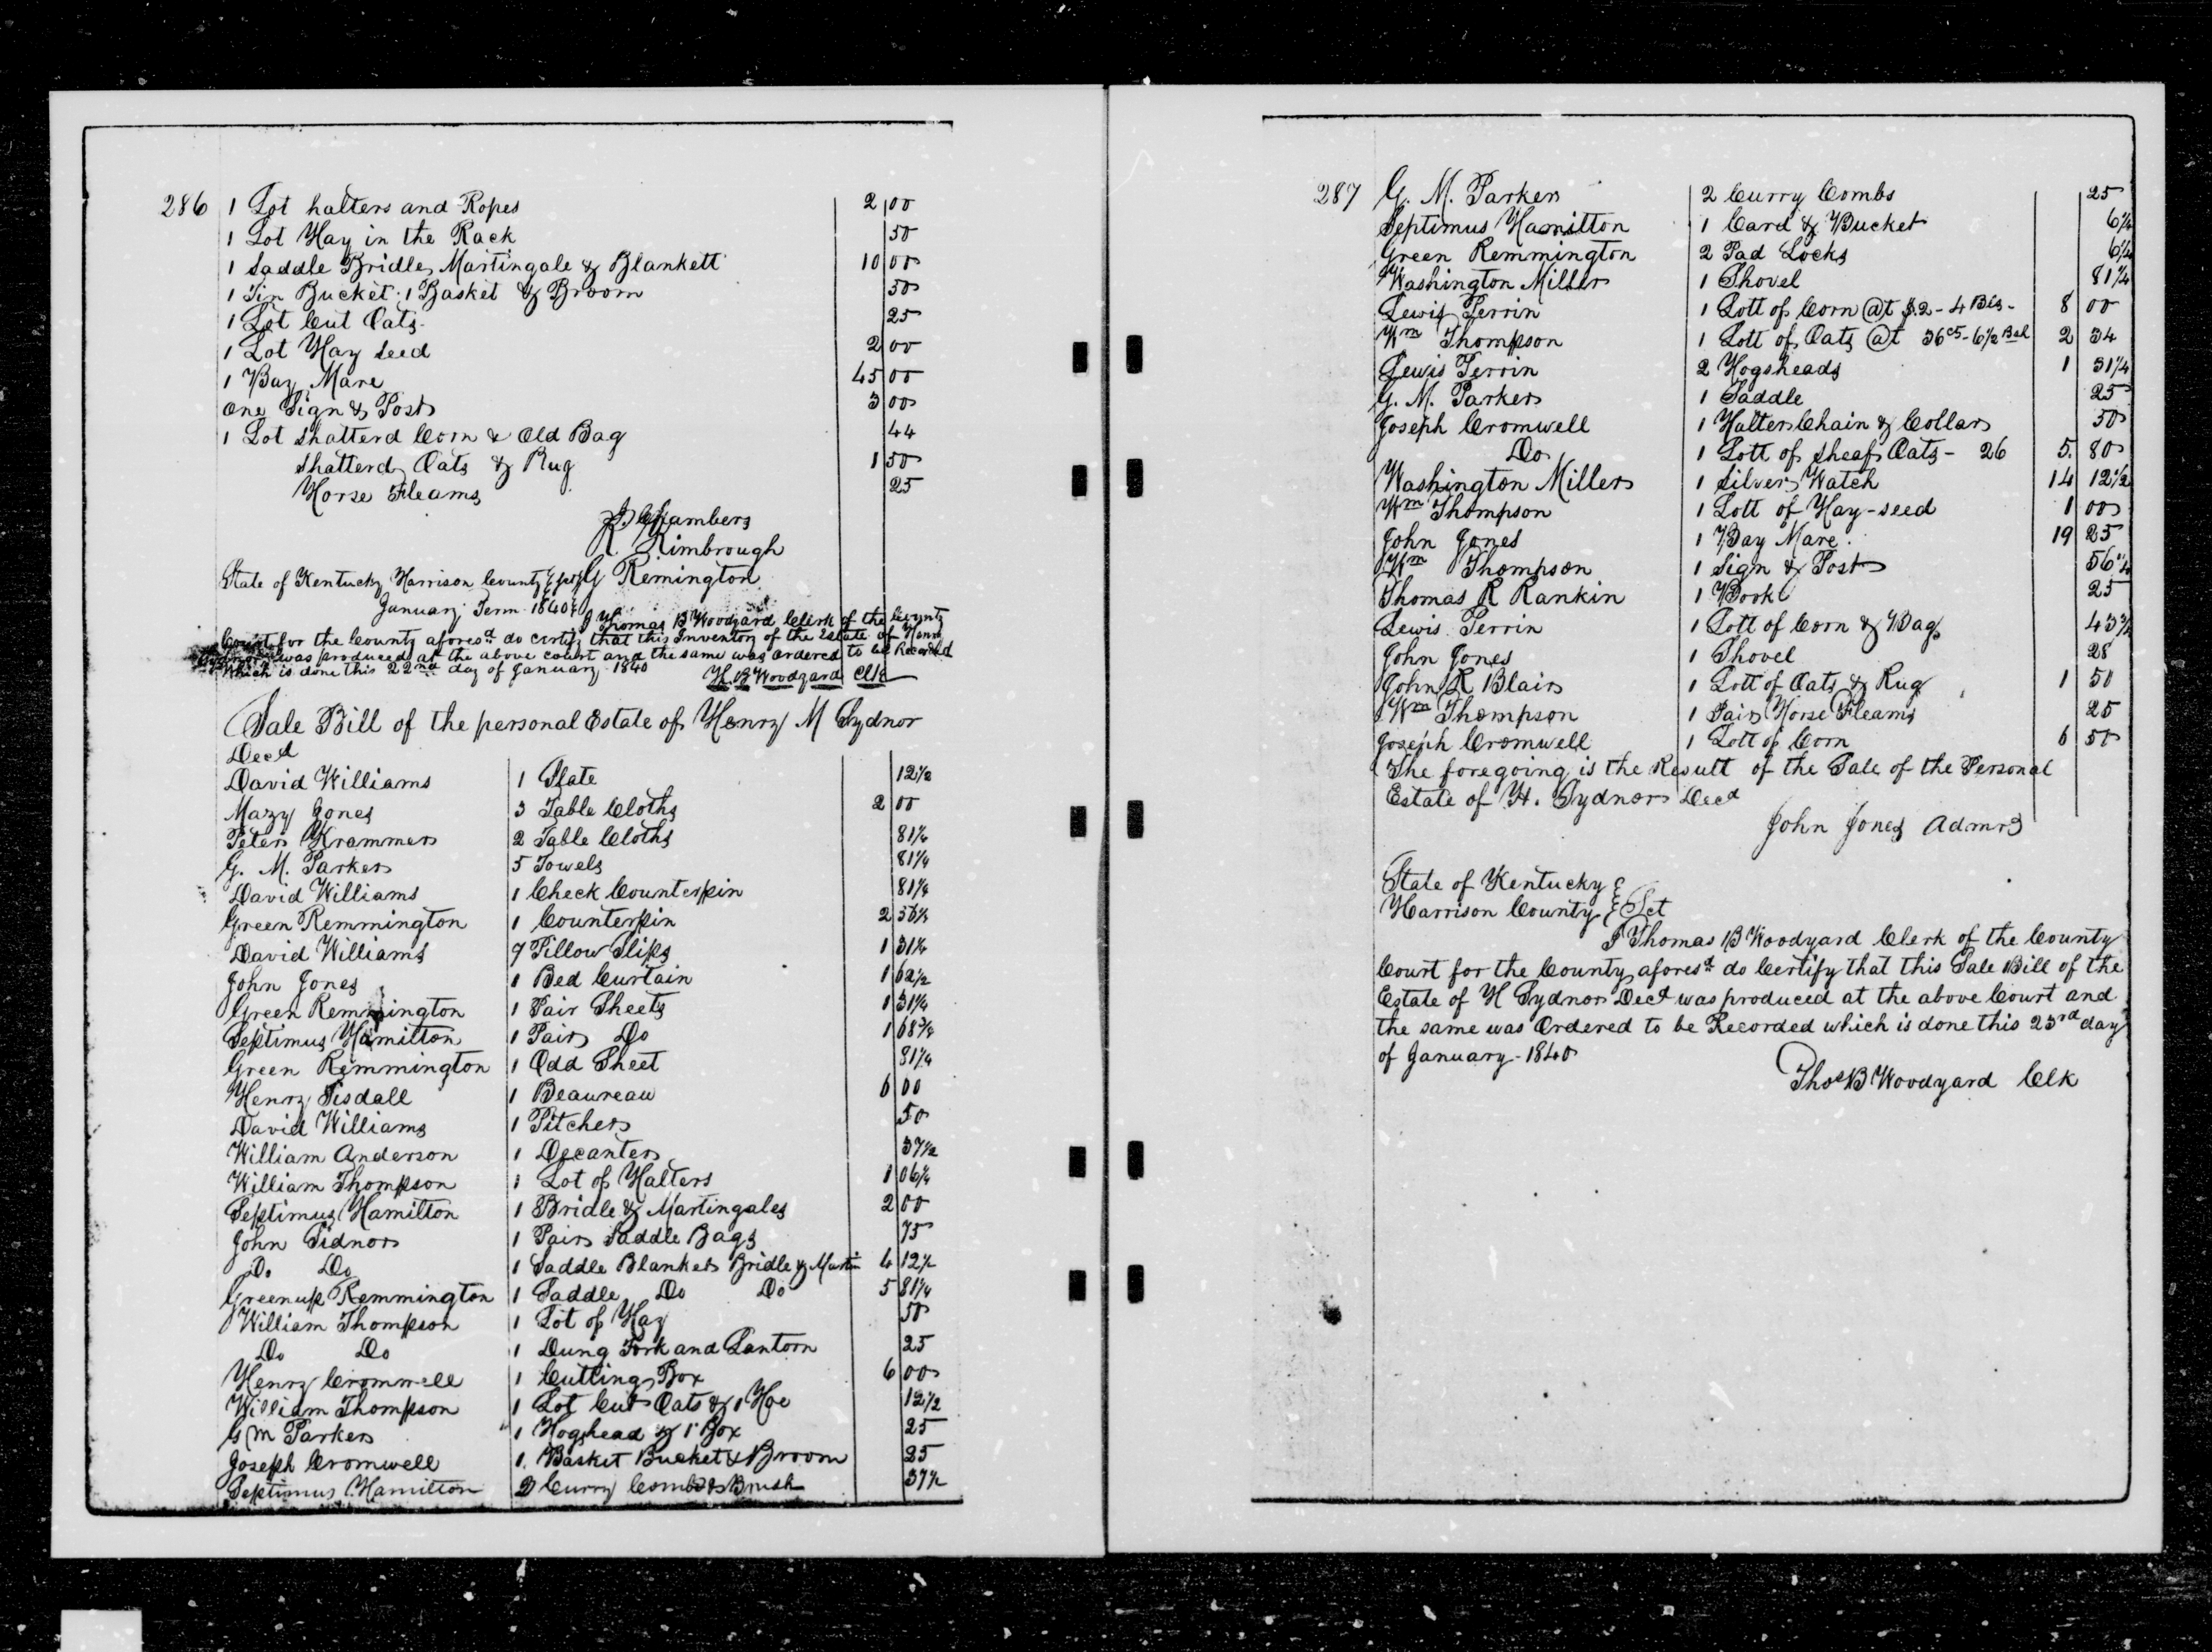 286 1 Lot halters and Ropes 2 00
1 Lot Hay in the Rack 50
1 Saddle Bridle, Martingale & Blankett 10 00
1 Tin Bucket 1 Basket & Broom 50
1 Lot Cut Oats 25
1 Lot Hay Seed 2 00
1 Bay Mare 45 00
One Sign & Post 3 00
1 Lot Shatterd Corn & Old Bag 44
Shatterd Oats & Rug 1 50
Horse Fleams 25
J. Chambers
R Kimbrough
State of Kentucky Harrison County G Remington
January Term 1840
I Thomas B Woodyard Clerk of the County
Court for the County aforesd do certify that this Inventory of the Estate of Henry
was produced at the above court and the same was ordered to be Recorded
Which is done this 22nd day of January 1840 Woodyard Clk
Sale Bill of the personal Estate of Henry M Sydnor
Decd
David Williams 1 Slate 12½
Mary Jones 3 Table Cloths 2 00
Peter Krammer 2 Table Cloths 81¼
G. M. Parker 5 Towels 81¼
David Williams 1 Check Counterpin 81¼
Green Remmington 1 Counterpin 2 56¼
David Williams 7 Pillow Slips 1 31¼
John Jones 1 Bed Curtain 1 62½
Green Remmington 1 Pair Sheets 1 31¼
Septimus Hamilton 1 Pair Do 1 68¾
Green Remmington 1 Odd Sheet 81¼
Henry Tisdall 1 Beaureau 6 00
David Williams 1 Pitcher 50
William Anderson 1 Decanter 37½
William Thompson 1 Lot of Halters 1 06¼
Septimus Hamilton 1 Bridle & Martingales 2 00
John Sidnor 1 Pair Saddle Bags 75
Do Do 1 Saddle Blanket Bridle & Martin 4 12½
Greenup Remmington 1 Saddle Do Do 5 81¼
William Thompson 1 Lot of Hay 50
Do Do 1 Dung Fork and Lantorn 25
Henry Cromwell 1 Cutting Box 6 00
William Thompson 1 Lot Cut Oats & 1 Hoe 12½
G M Parker 1 Hogshead & 1 Box 25
Joseph Cromwell 1 Basket Bucket & Broom 25
Septimus Hamilton 2 Curry Combs & Brush 37½
287 G. M. Parker 2 Curry Combs 25
Septimus Hamilton 1 Card & Bucket 6¼
Green Remmington 2 Pad Locks 6¼
Washington Miller 1 Shovel 81¼
Lewis Perrin 1 Lott of Corn @t $2 - 4 Bls - 8 00
Wm Thompson 1 Lott of Oats @t 36cs - 6½ Bsl 2 34
Lewis Perrin 2 Hogsheads 1 31¼
G. M. Parker 1 Saddle 25
Joseph Cromwell 1 Halter Chain & Collar 50
Do 1 Lott of Sheaf Oats - 26 5. 80
Washington Miller 1 Silver Watch 14 12½
Wm Thompson 1 Lott of Hay-seed 1 00
John Jones 1 Bay Mare 19 25
Wm Thompson 1 Sign & Post 56¼
Thomas R Rankin 1 Book 25
Lewis Perrin 1 Lott of Corn & Bag 43¾
John Jones 1 Shovel 28
John R Blair 1 Lott of Oats & Rug 1 50
Wm Thompson 1 Pair Horse Fleams 25
Joseph Cromwell 1 Lott of Corn 6 50
The foregoing is the Result of the Sale of the Personal
Estate of H. Sydnor Decd
John Jones Admr
State of Kentucky
Harrison County Sct
I Thomas B Woodyard Clerk of the County
Court for the County aforesd do Certify that this Sale Bill of the
Estate of H Sydnor Decd was produced at the above Court and
the same was Ordered to be Recorded which is done this 23rd day
of January - 1840
Thos B Woodyard Clk